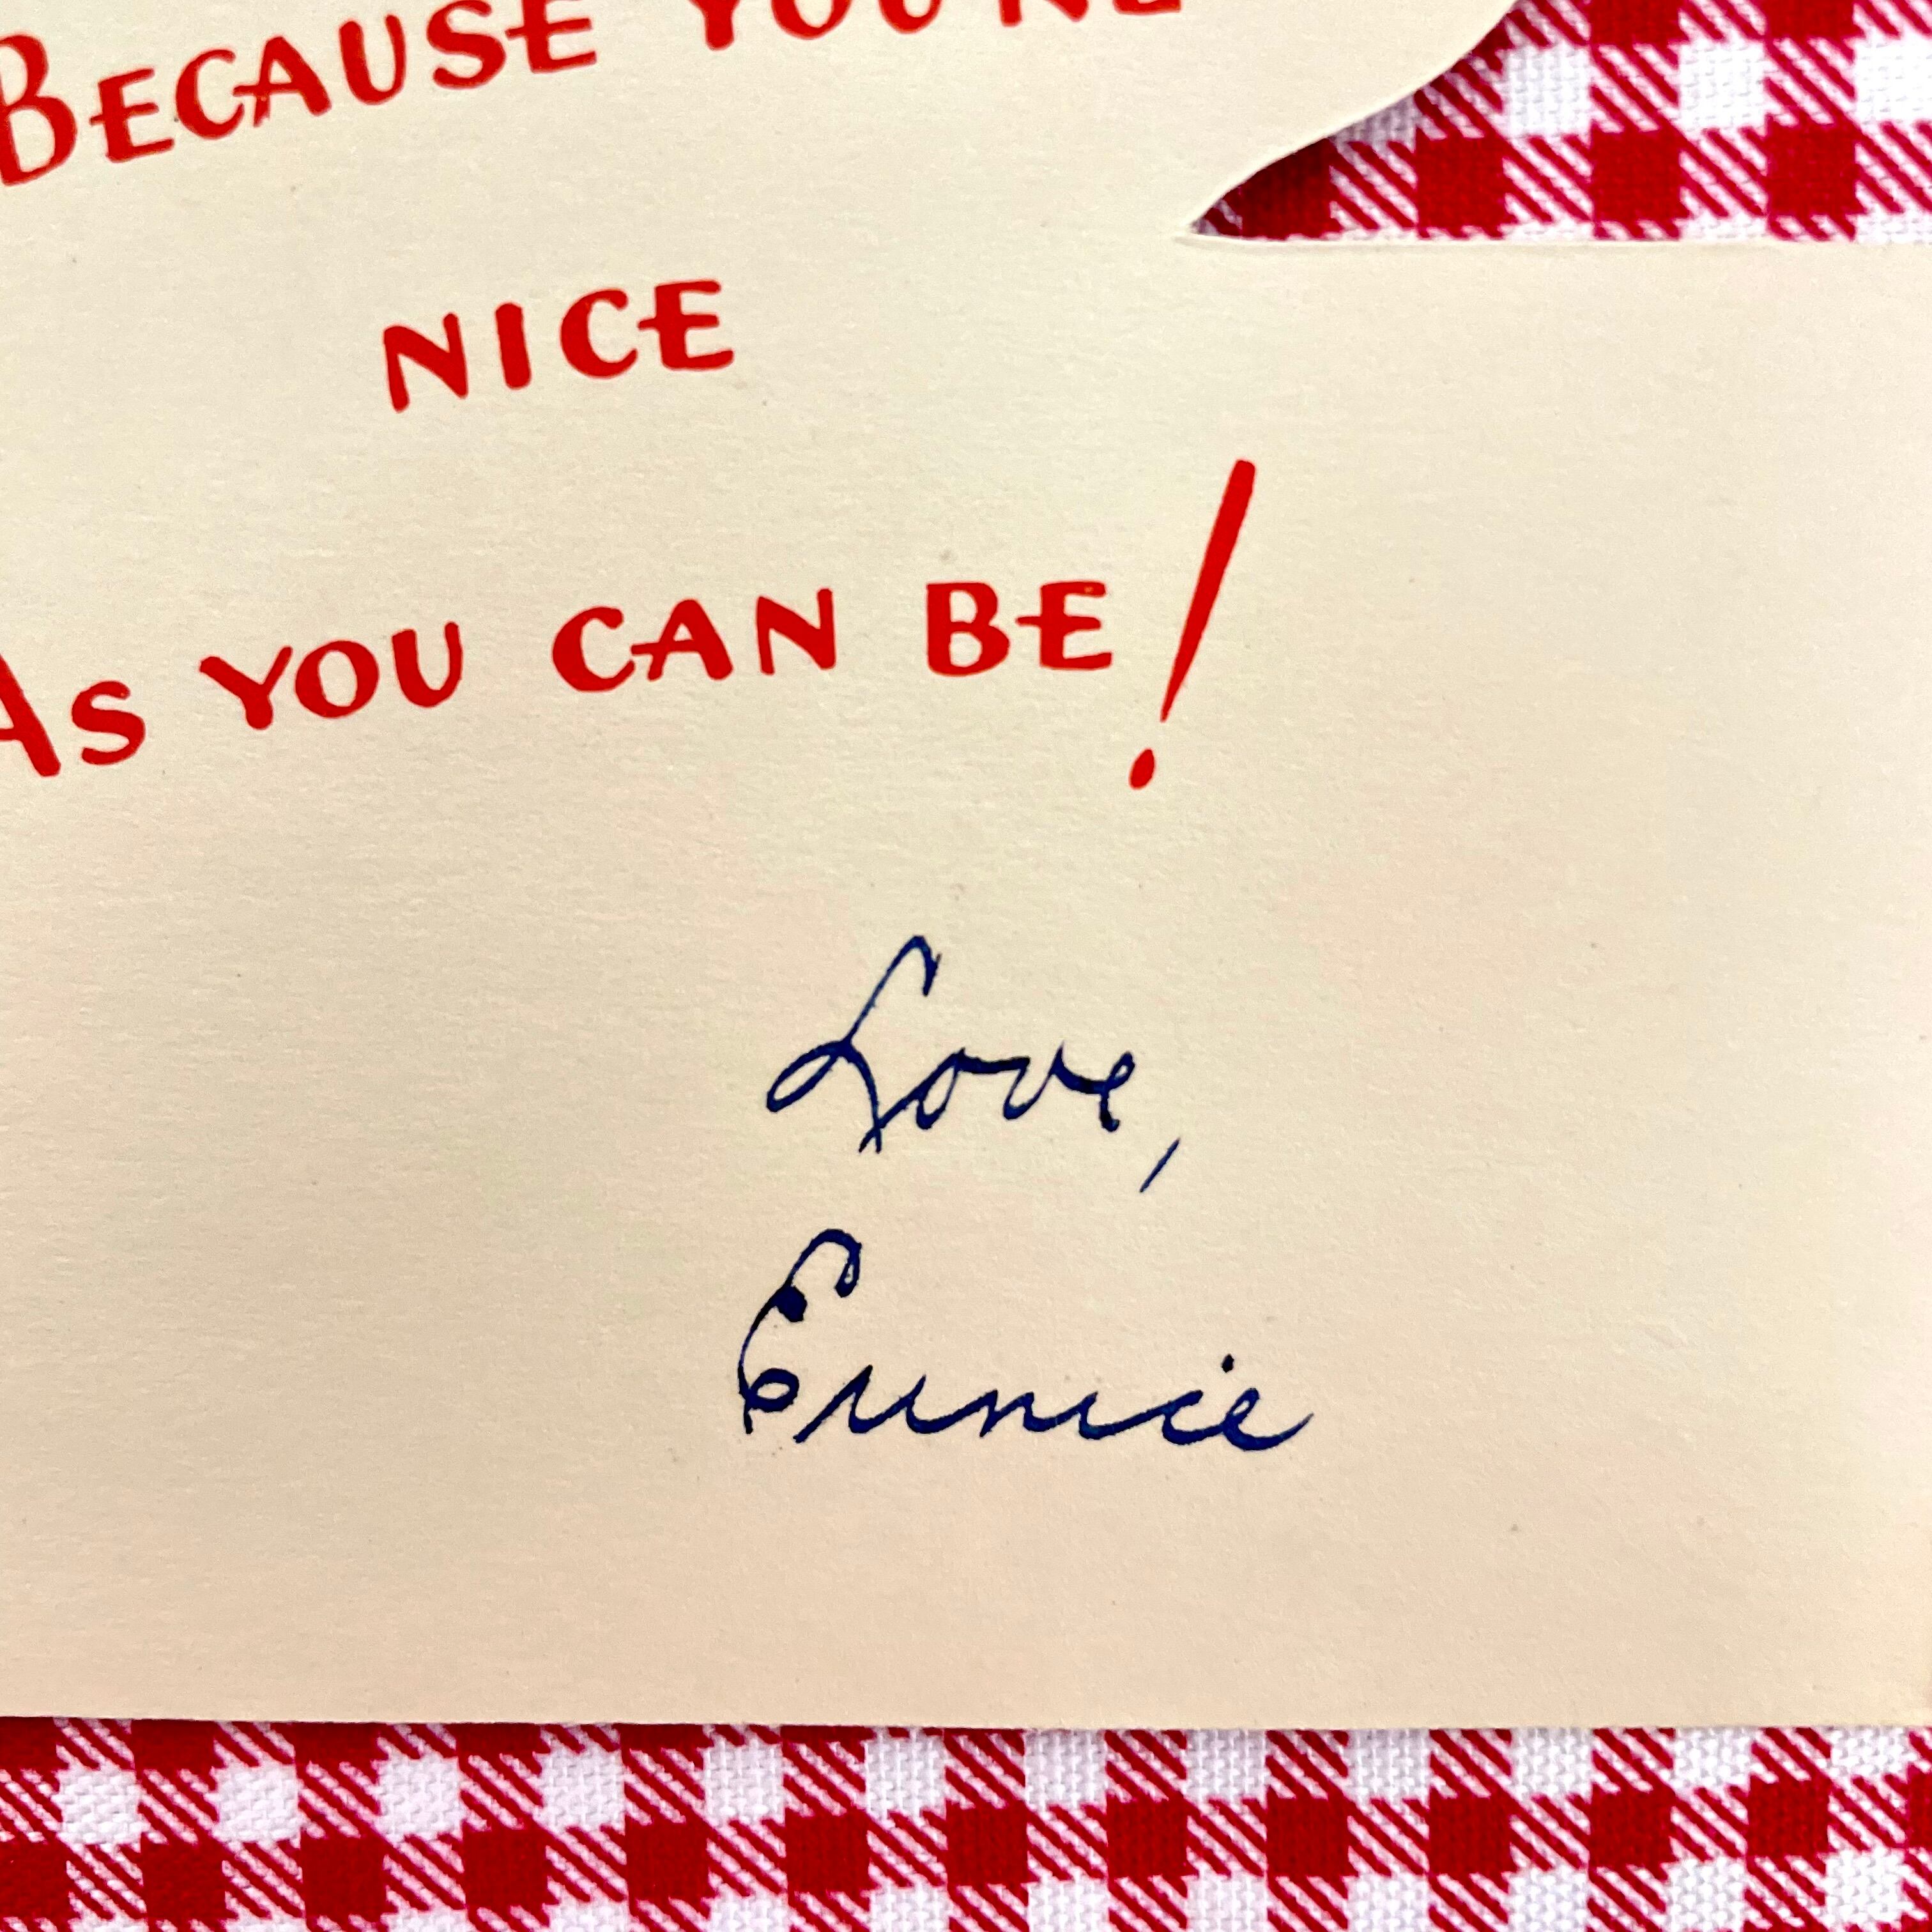 BECAUSE YOU'RE
NICE
AS YOU CAN BE!
Love,
Eunice